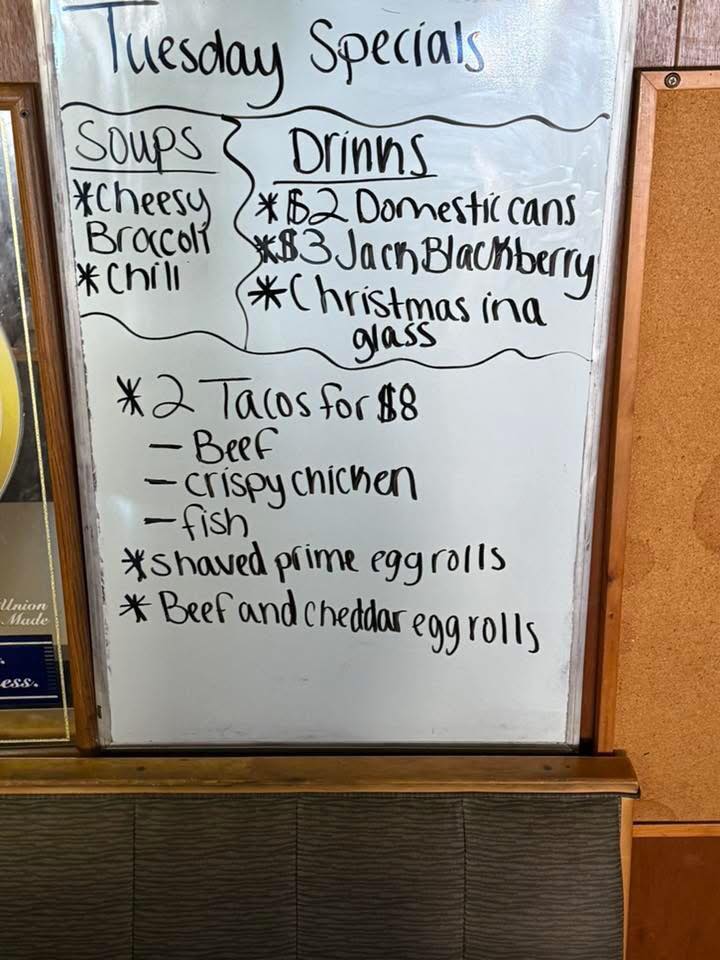 Tuesday Specials
Soups
*Cheesy
Broccoli
*Chili
Drinks
*$2 Domestic cans
*$3 Jack Blackberry
*Christmas in a
glass
*2 Tacos for $8
- Beef
- crispy chicken
- fish
*shaved prime egg rolls
*Beef and cheddar egg rolls
Union
Made
ess.